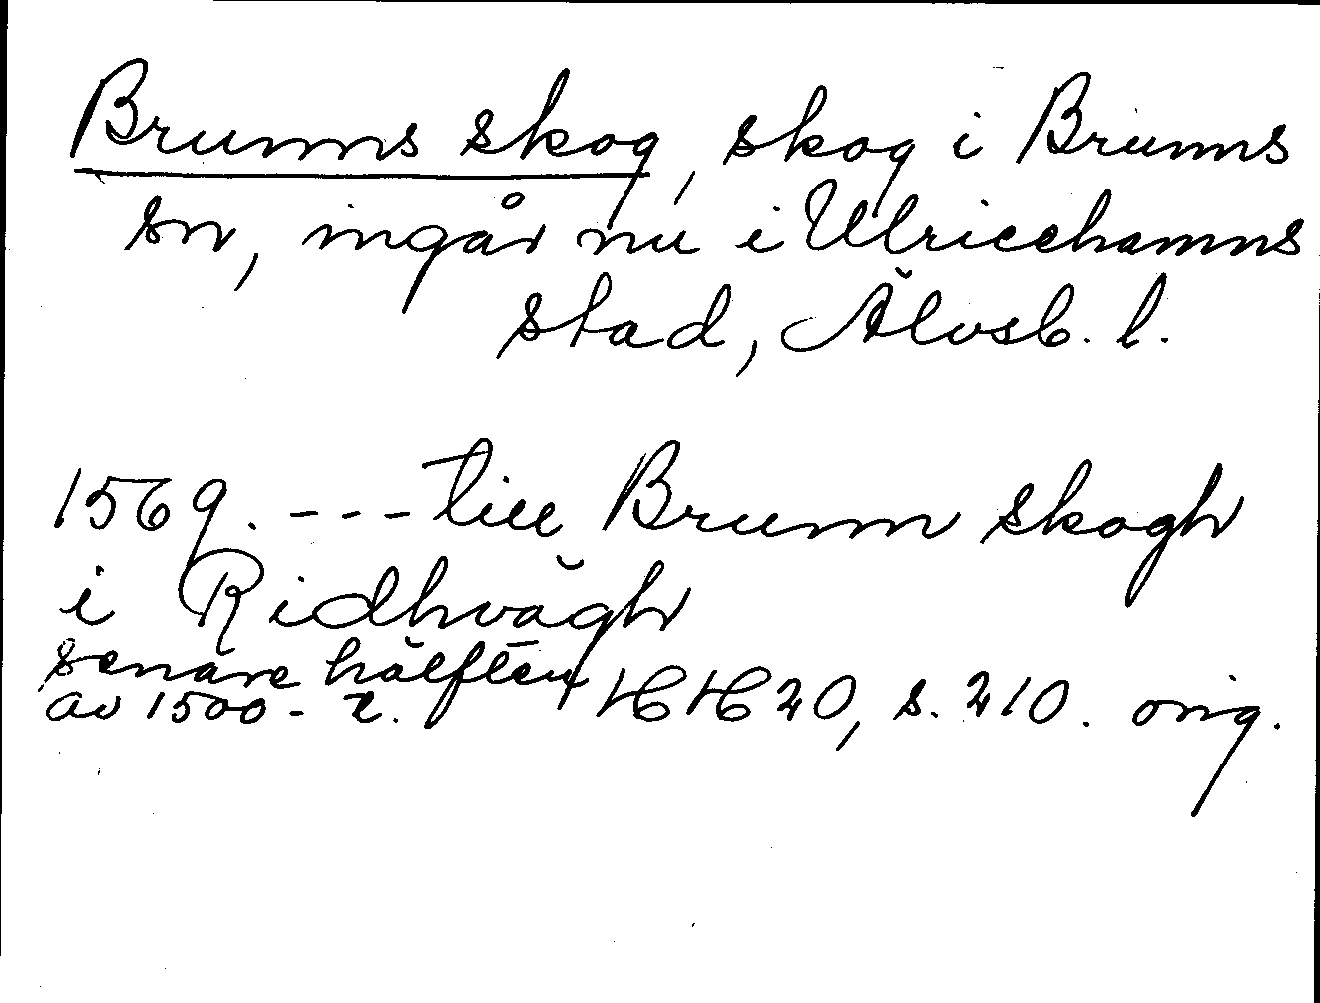 Brunns skog, skog i Brunns
sn, ingår nu i Ulricehamns
stad, Älvsb. l.
1569. --- till Brunn skogh
i Ridhvägh
senare hälften
av 1500-t. HH 20, s. 210. orig.